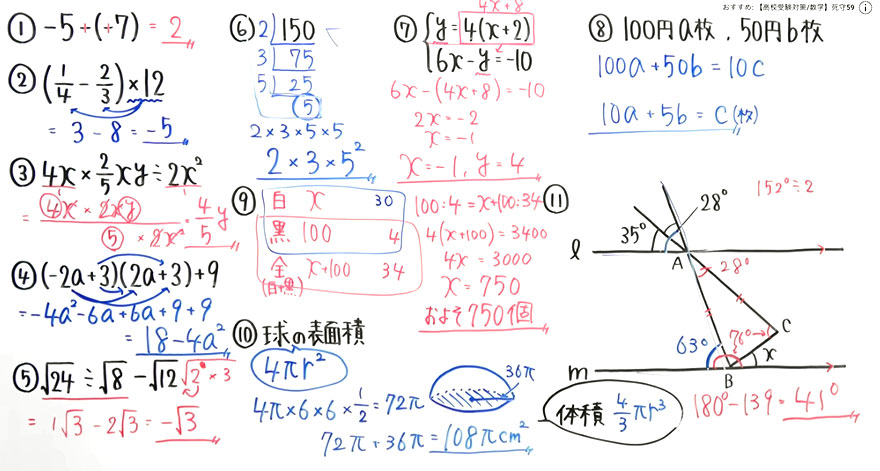 おすすめ: 【高校受験対策/数学】死守59
① -5+(+7) = 2
② (1/4 - 2/3) × 12
= 3 - 8 = -5
③ 4x × 2/5 xy ÷ 2x²
= 4x × 2xy / 5 × 2x² = 4/5 y
④ (-2a+3)(2a+3)+9
= -4a² - 6a + 6a + 9 + 9
= 18 - 4a²
⑤ √24 ÷ √8 - √12 √2² × 3
= 1√3 - 2√3 = -√3
⑥ 2 150
3 75
5 25
5
2 × 3 × 5 × 5
2 × 3 × 5²
⑦ 4x+8
{ y = 4(x+2)
6x - y = -10
6x - (4x+8) = -10
2x = -2
x = -1
x = -1, y = 4
⑧ 100円a枚, 50円b枚
100a + 50b = 10c
10a + 5b = c (枚)
⑨ 白 x 30
黒 100 4
全 x+100 34
(白+黒)
100:4 = x+100:34
4(x+100) = 3400
4x = 3000
x = 750
およそ750個
⑩ 球の表面積
4πr²
4π × 6 × 6 × 1/2 = 72π
36π
72π + 36π = 108π cm²
体積 4/3 πr³
⑪ 28°
152° ÷ 2
35°
ℓ
A
28°
C
63°
76°
x
m
B
180° - 139 = 41°